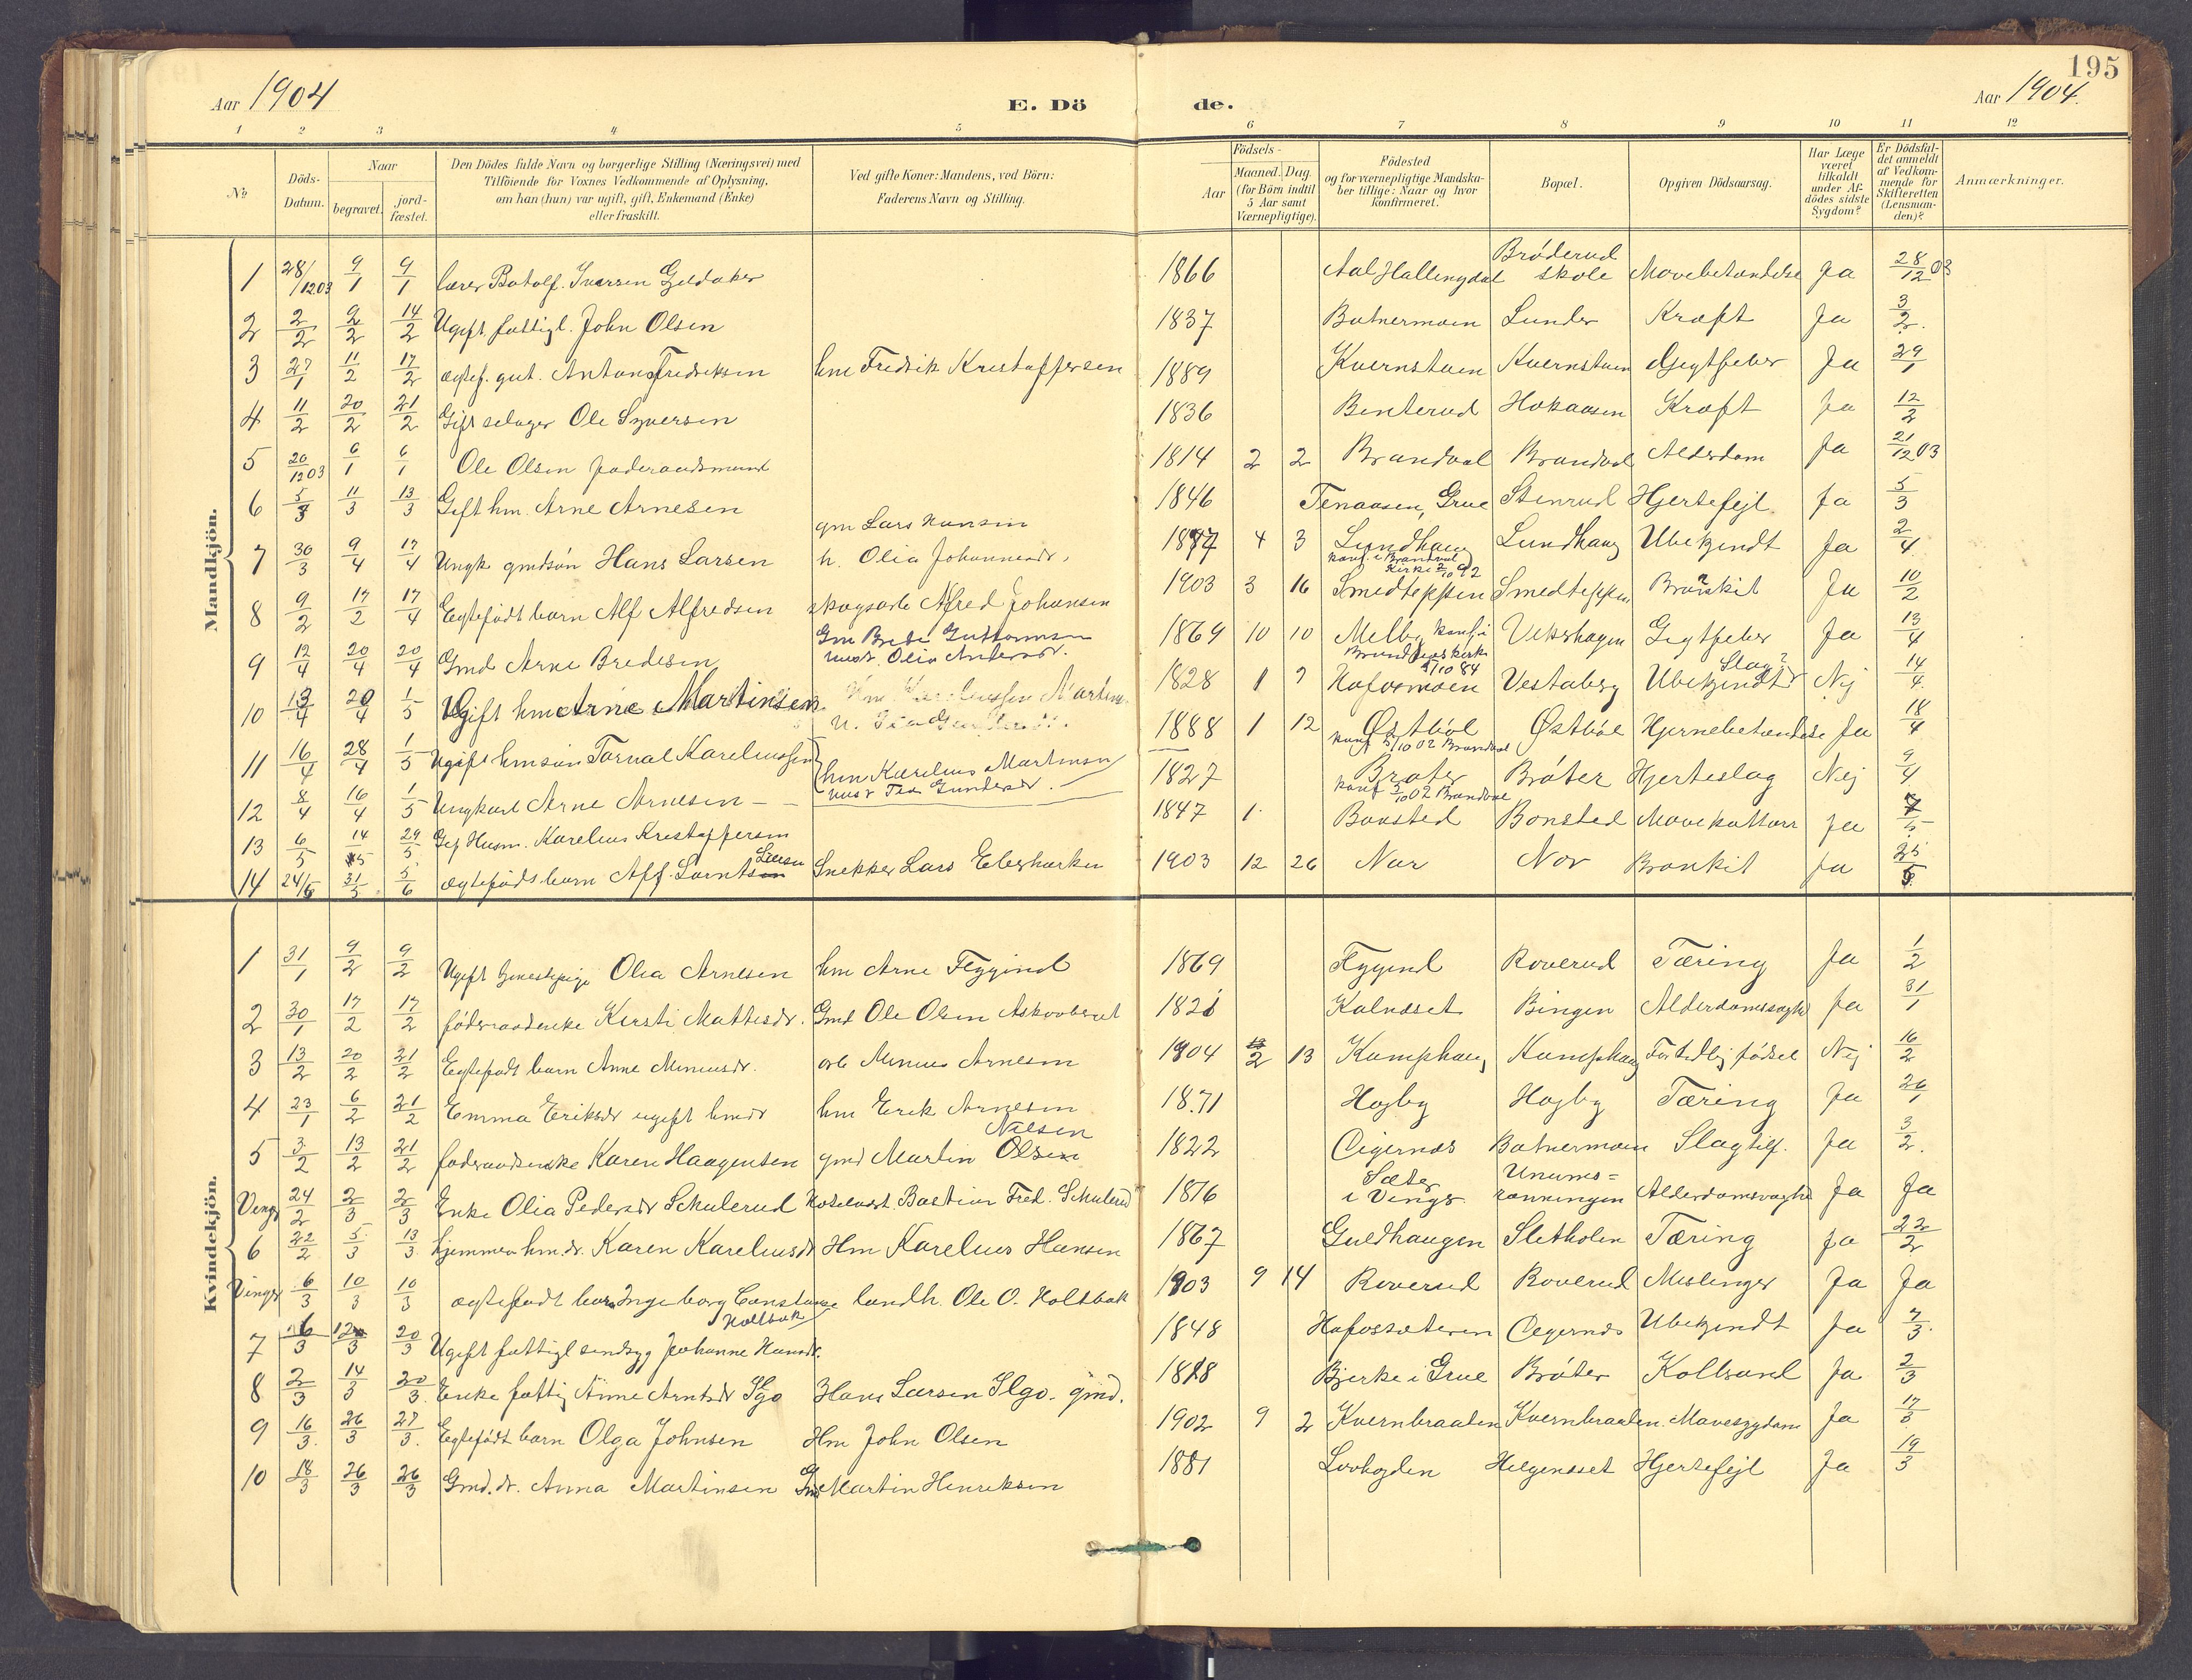 195
Aar 1904
E. Dö
de.
Aar 1904.
1 2 3 4 5 6 7 8 9 10 11 12
No
Döds-Datum.
Naar
begravet.
jord-fæstet.
Den Dödes fulde Navn og borgerlige Stilling (Næringsvei) med
Tilföiende for Voxnes Vedkommende af Oplysning,
om han (hun) var ugift, gift, Enkemand (Enke)
eller fraskilt.
Ved gifte Koner: Mandens, ved Börn:
Faderens Navn og Stilling.
Födsels-
Aar
Maaned. Dag.
(for Börn indtil
5 Aar samt
Værnepligtige).
Födested
og for værnepligtige Mandska-
ber tillige: Naar og hvor
konfirmeret.
Bopæl.
Opgiven Dödsaarsag.
Har Læge
været
tilkaldt
under Af-
dödes sidste
Sygdom?
Er Dödsfal-
det anmeldt
af Vedkom-
mende for
Skifteretten
(Lensman-
den)?
Anmærkninger.
Mandkjön.
1 28/12 03 9/1 9/1 lærer Botolf Iversen Gjeldaker 1866 Aal Hallingdal Bröderud skole Mavebetændelse Ja 28/12 03
2 2/2 9/2 14/2 Ugift fattigl. John Olsen 1837 Batnermoen Lunder Kræft Ja 3/2.
3 27/1 11/2 17/2 ægtef. gut. Anton Fredriksen hm Fredrik Kristoffersen 1889 Kvernstuen Kvernstuen Gigtfeber Ja 29/1
4 11/2 20/2 21/2 Gift selveger Ole Syversen 1836 Benterud Hokaasen Kræft Ja 12/2
5 20/12 03 6/1 6/1 Ole Olsen föderaadsmand 1814 2 2 Brandval Brandval Alderdom Ja 21/12 03
6 5/3 11/3 13/3 Gift hm. Arne Arnesen 1846 Tenaasen, Grue Stenrud Hjertefejl. Ja 5/3
7 30/3 9/4 17/4 Ungk. gmdsön Hans Larsen gm Lars Hansen
h. Olia Johannesdr. 1877 4 3 Lundhaug
konf. i Brandval
Kirke 2/10 92 Lundhaug Ubekjendt Ja 2/4
8 9/2 17/2 17/4 Egtefödt barn Alf Alfredsen skogsarb Alfred Johansen 1903 3 16 Smedteppen Smedteppen Bronkit Ja 10/2
9 12/4 20/4 20/4 Gmd Arne Bredesen Gm Brede Guttormsen
hustr. Olia Andersdr. 1869 10 10 Melby konf i
Brandvals kirke
5/10 84 Vekshagen Gigtfeber Ja 13/4
10 13/4 20/4 1/5 Gift hm Arne Martinsen 1828 1 7 Hafosmoen Vestaberg Ubekjendt Slag? Nej 14/4.
11 16/4 28/4 1/5 Ugift hmsön Torval Kareliussen (hm Karelius Martinsen
hustr Tea Gundersdr. 1888 1 12 Østböl
konf 5/10 02 Brandval Østböl Hjernebetændelse Ja 18/4
12 8/4 16/4 1/5 Ungkarl Arne Arnesen 1827 Bråter
konf 5/10 02 Brandval Bråter Hjerteslag Nej 9/4
13 6/5 14/5 29/5 Gif Husm. Karelius Kristoffersen 1847 1 Bonsted Bonsted Mavekattarr Ja 7/5
14 24/5 31/5 5/6 ægtefödt barn Alf Larntsen Larsen Snekker Lars Ebesharken 1903 12 26 Nor Nor Bronkit Ja 25/5
Kvindekjön.
1 31/1 9/2 9/2 Ugift tjenestepige Olea Arnesen hm Arne Flygind 1869 Flygind Roverud Tæring Ja 1/2
2 30/1 17/2 17/2 föderaadenke Kersti Mattesdr. Gmd Ole Olsen Askovberget 1821 Kalnæset Bingen Alderdomssvaghed Ja 31/1
3 13/2 20/2 21/2 Egtefödt barn Anne Meniusdr. arb Menius Arnesen 1904 2 13 Kamphaug Kamphaug For tidlig födsel Nej 16/2
4 23/1 6/2 21/2 Emma Eriksdr ugift hmdr hm Erik Arnesen 1871 Hojby Hojby Tæring Ja 26/1
5 3/2 13/2 21/2 föderaadsenke Karen Haagensen gmd Martin Olsen Nilsen 1822 Cigernæs Batnermoen Slagtilf. Ja 3/2.
Vinger 24/2 2/3 2/3 Enke Olia Pedersdr Schulerud Bastian Fred. Schulerud 1816 Sæter
i Vinger Unums-
rønningen Alderdomsvaghed Ja Ja
6 22/2 5/3 13/3 hjemmev hm.dr. Karen Kareliusdr Hm Karelius Hansen 1867 Guldhaugen Sletholen Tæring Ja 22/2
Vinger 6/3 10/3 10/3 ægtefödt barn Ingeborg Constanse
Holtbak landh. Ole O. Holtbak 1903 9 14 Roverud Roverud Meslinger Ja Ja
7 6/3 12/3 20/3 Ugift fattigl sindsyg Johanne Hansdr. 1848 Hafossæteren Cigernæs Ubekjendt Ja 7/3.
8 2/3 14/3 20/3. Enke fattig Anne Arntsdr Ilgo Hans Larsen Ilgo. gmd. 1818 Bjerke i Grue Bråter Koldbrand Ja 2/3
9 16/3. 26/3 27/3. Egtefödt barn Olga Johnsen Hm John Olsen 1902 9 2 Kvernbraaten Kvernbraaten. Mavesygdom Ja 17/3
10 18/3 26/3 26/3 Gmd. dr. Anna Martinsen Gmd Martin Henriksen 1881 Lovhogden Helgenæset Hjertefejl Ja 19/3